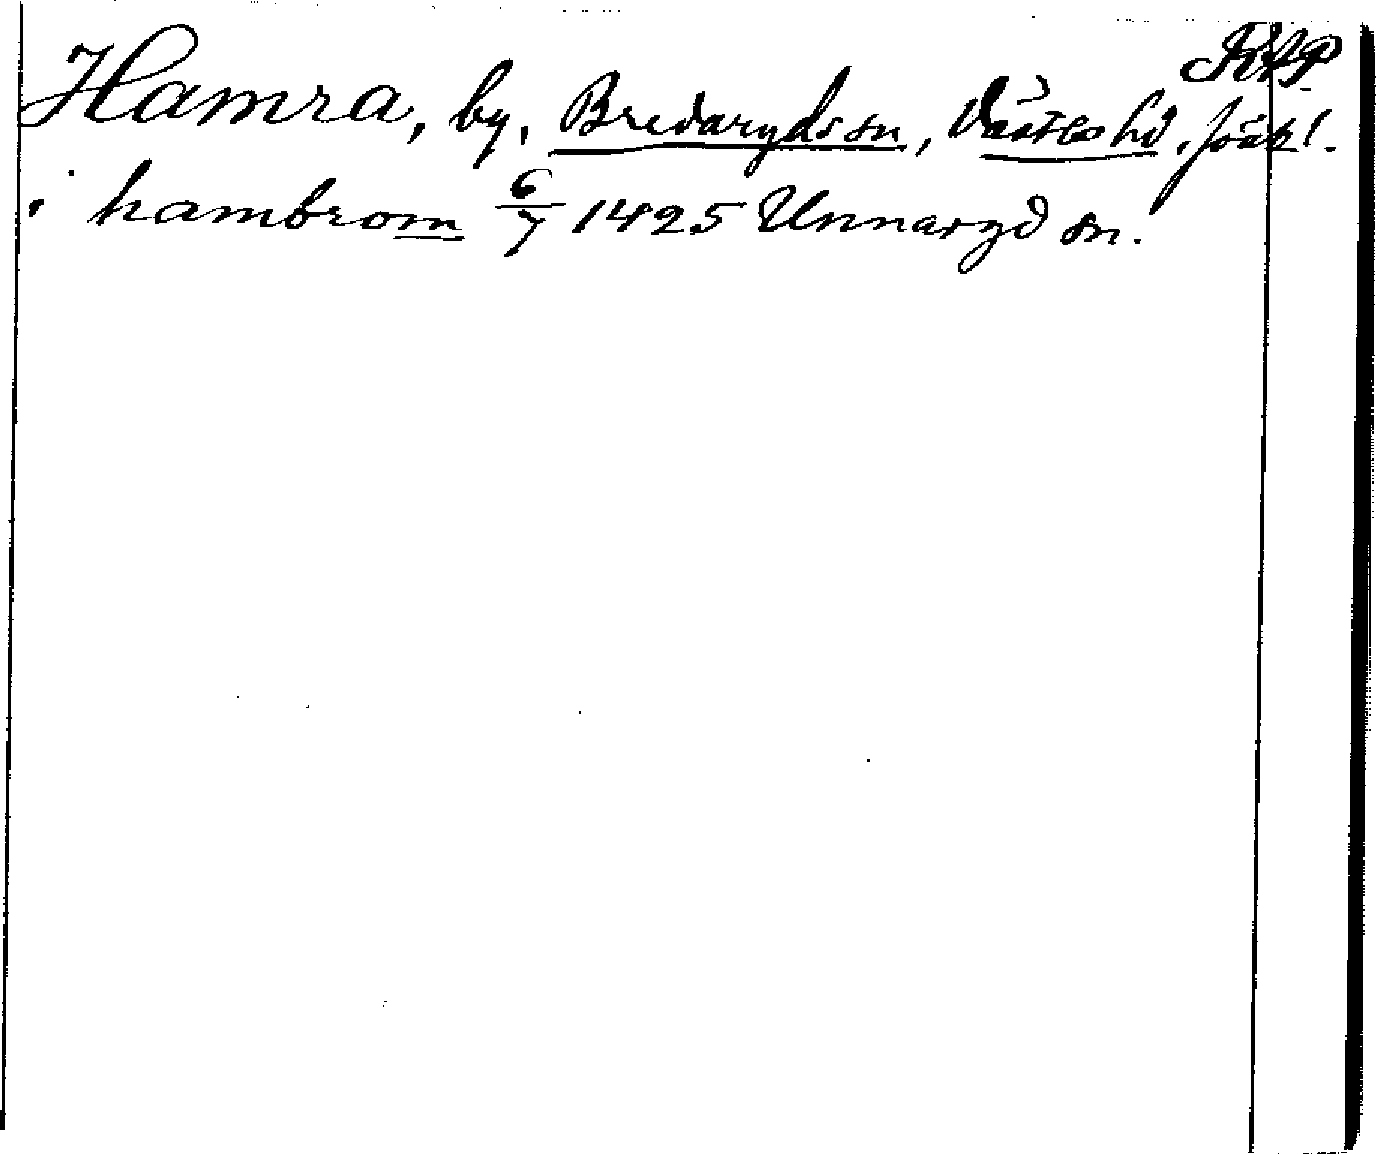 RAP
Hamra, by, Bredaryds sn, Västbo hd. Jönk l.
i hambrom 6/7 1425 Unnaryd sn.